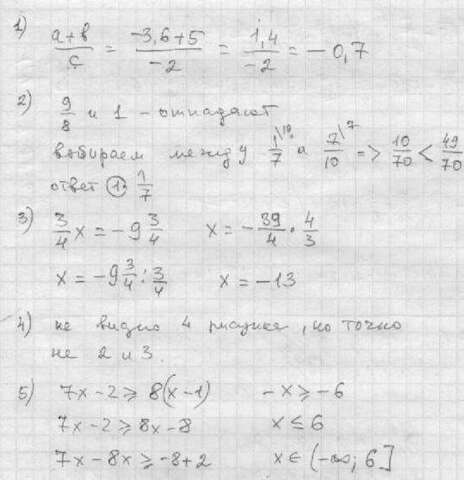 1) (a+b)/c = (-3,6+5)/(-2) = 1,4/(-2) = -0,7
2) 9/8 и 1 - отпадают
выбираем между 1\10/7 и 7\7/10 => 10/70 < 49/70
ответ 1. 1/7
3) 3/4 x = -9 3/4    x = -39/4 · 4/3
x = -9 3/4 : 3/4    x = -13
4) не видно 4 рисунке, но точно
не 2 и 3.
5) 7x-2 ≥ 8(x-1)    -x ≥ -6
7x-2 ≥ 8x-8    x ≤ 6
7x-8x ≥ -8+2    x ∈ (-∞; 6]